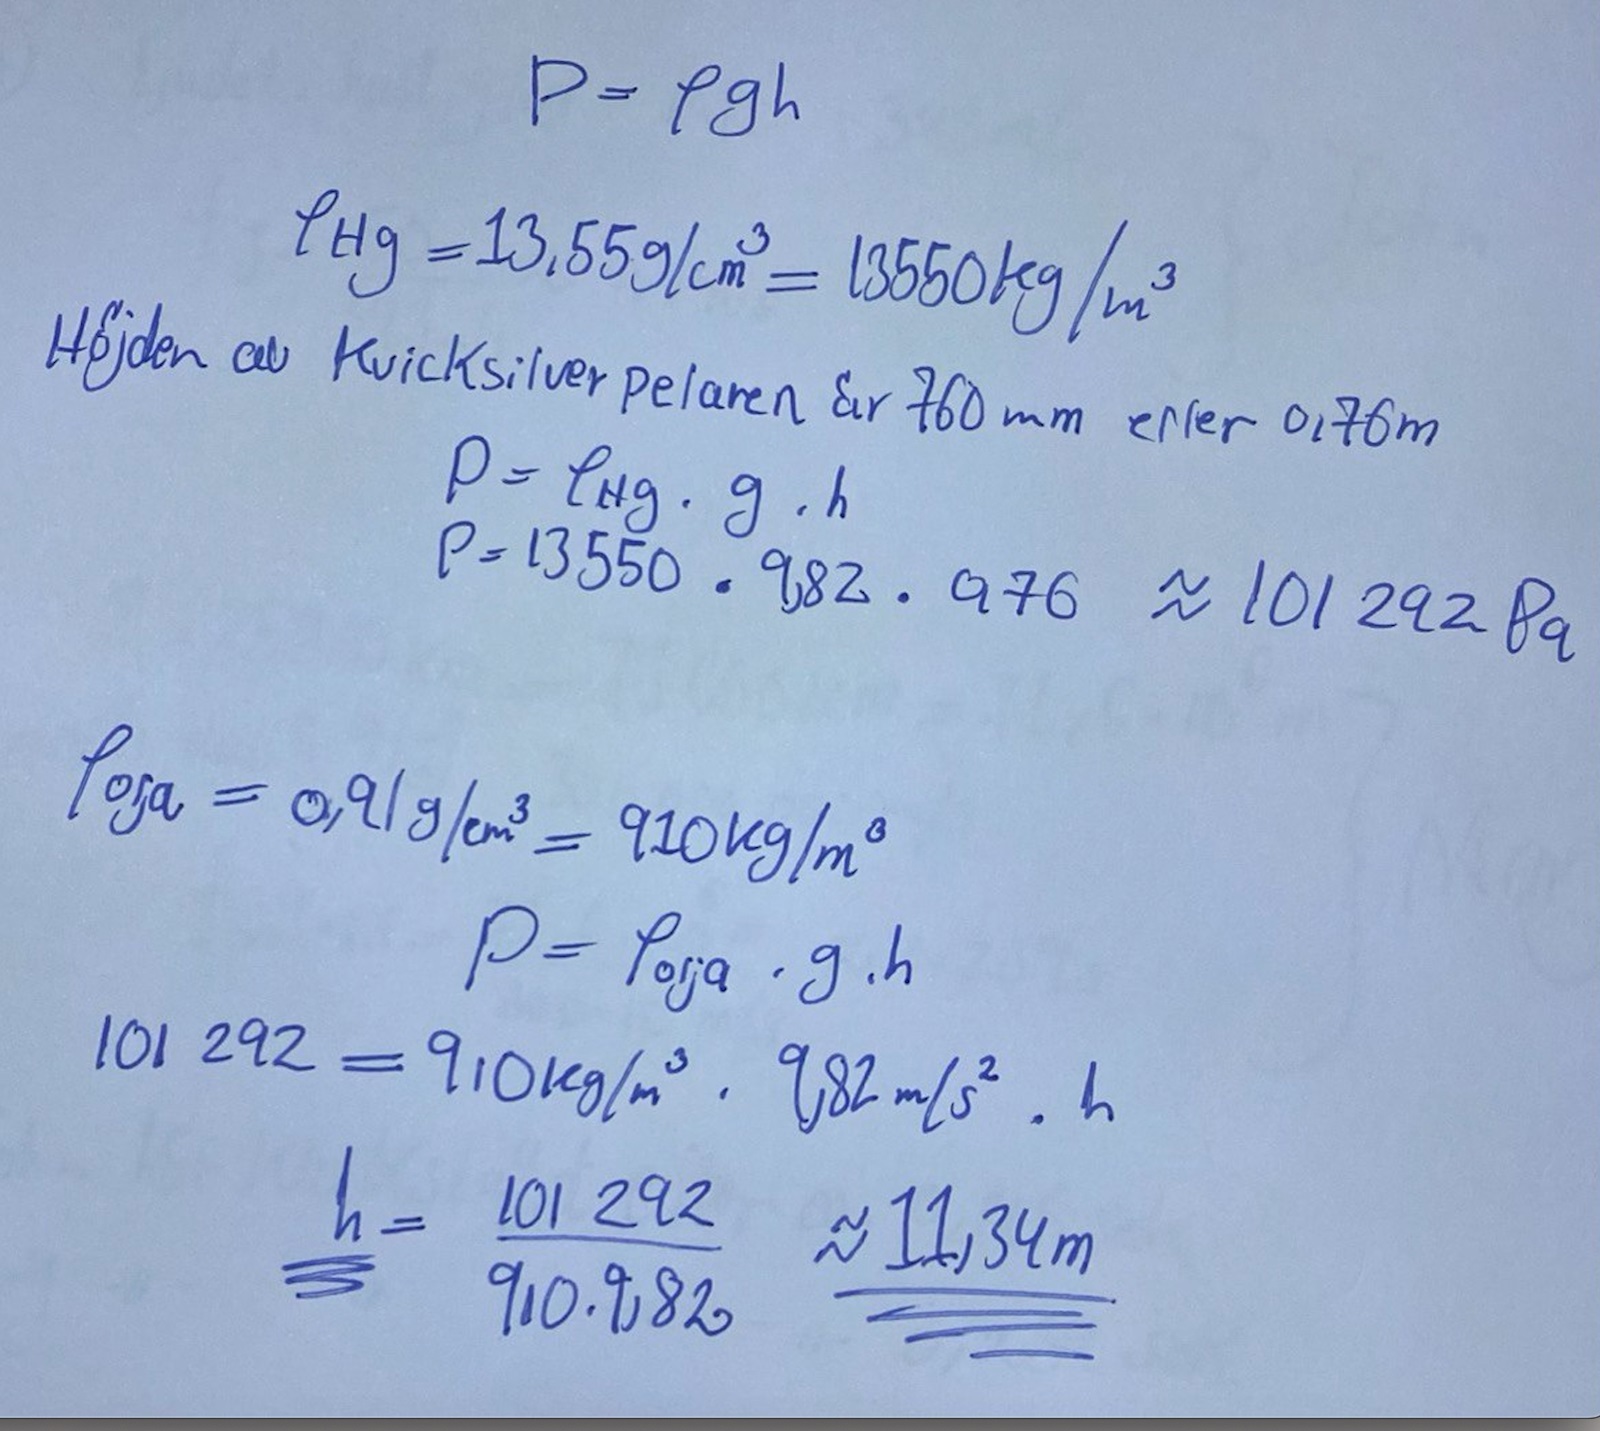 P = ρgh
ρHg = 13,55g/cm³ = 13550kg/m³
Höjden av Kvicksilverpelaren är 760 mm eller 0,76m
P = ρHg · g · h
P = 13550 · 9,82 · 0,76 ≈ 101 292 Pa
ρolja = 0,91g/cm³ = 910kg/m³
P = ρolja · g · h
101 292 = 910kg/m³ · 9,82 m/s² · h
h = 101 292 / 910 · 9,82 ≈ 11,34m